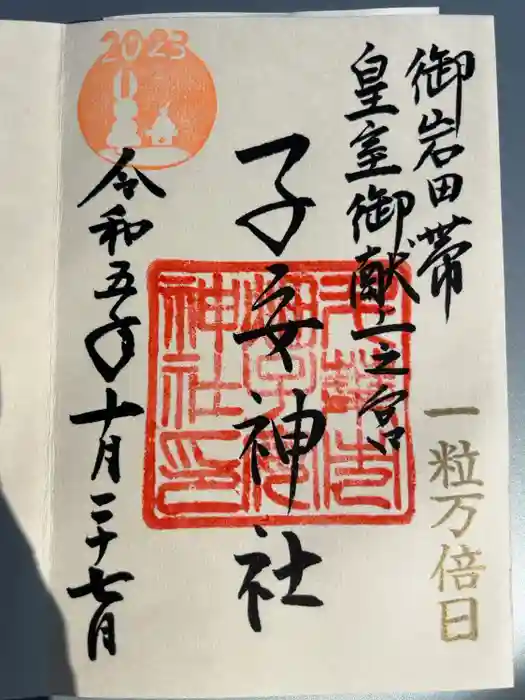 御岩田帯
皇室御献上之宮
一粒万倍日
子安神社
令和五年十月二十七日
2023